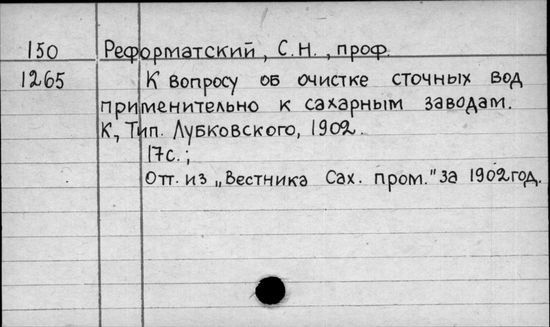 150 Реформатский, С.Н., проф.
1265 К вопросу об очистке сточных вод
применительно к сахарным заводам.
К, Тип. Лубковского, 1902.
17с.;
Отт. из „Вестника Сах. пром." за 1902 год.